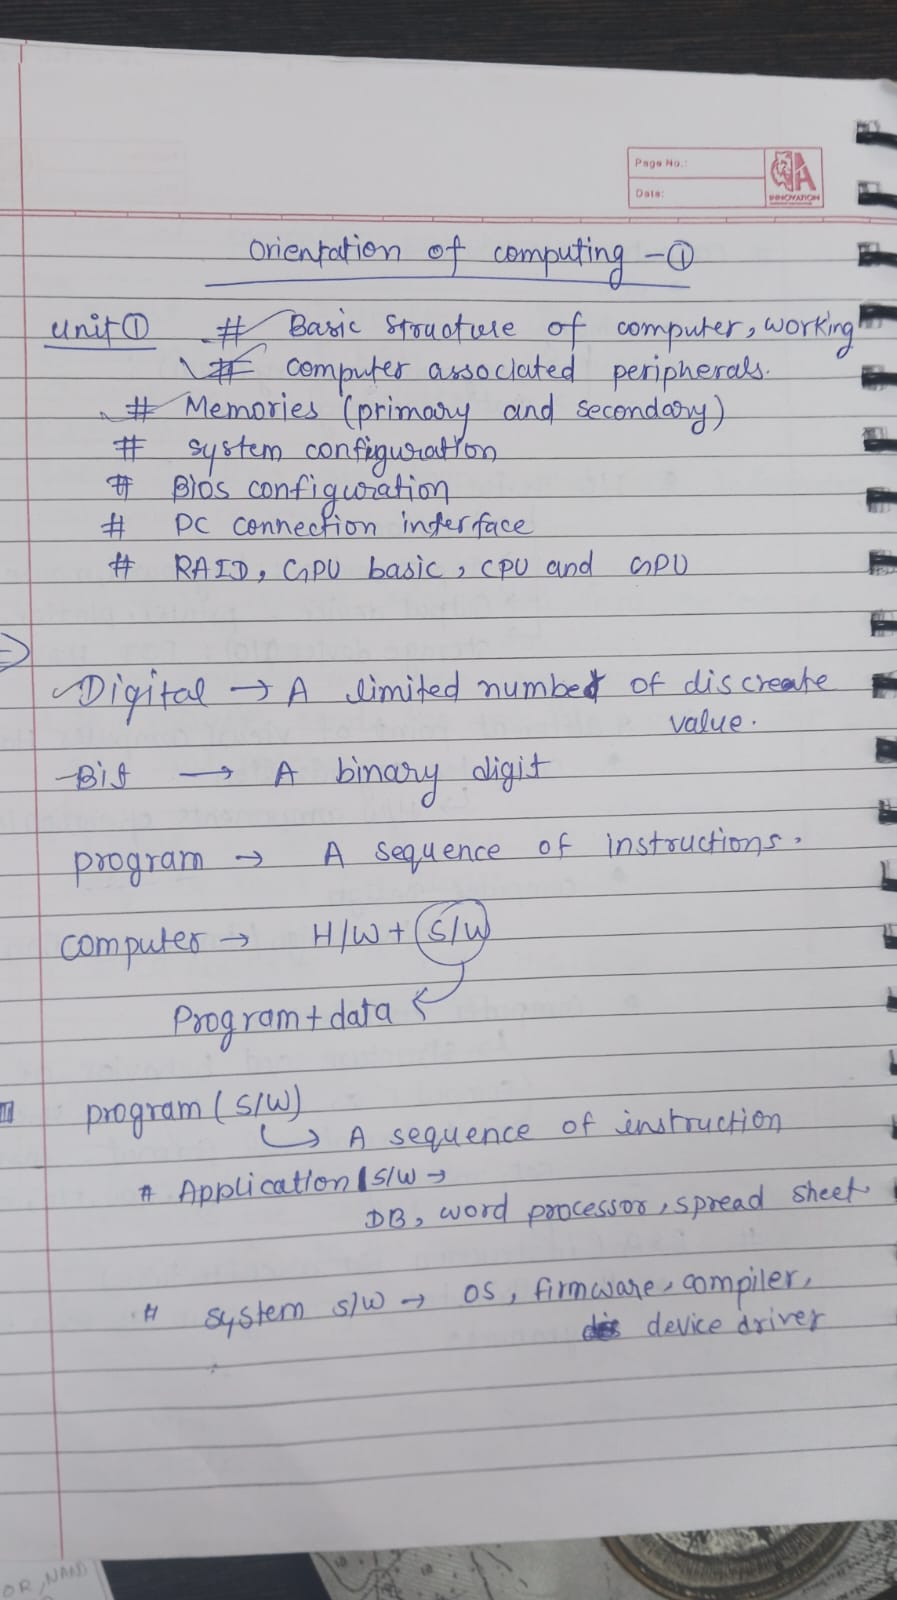 Page No.:
Date:
INNOVATION
Orientation of computing - ①
Unit ① # Basic structure of computer, working
# computer associated peripherals.
# Memories (primary and secondary)
# system configuration
# Bios configuration
# PC connection interface
# RAID, GPU basic, CPU and GPU
⇒
Digital → A limited number of discreate
value.
Bit → A binary digit
program → A sequence of instructions.
computer → H/W + S/W
Program + data
program (S/W)
↳ A sequence of instruction
# Application S/W →
DB, word processor, spread sheet
# system s/w → OS, firmware, compiler,
device driver
OR, NAND